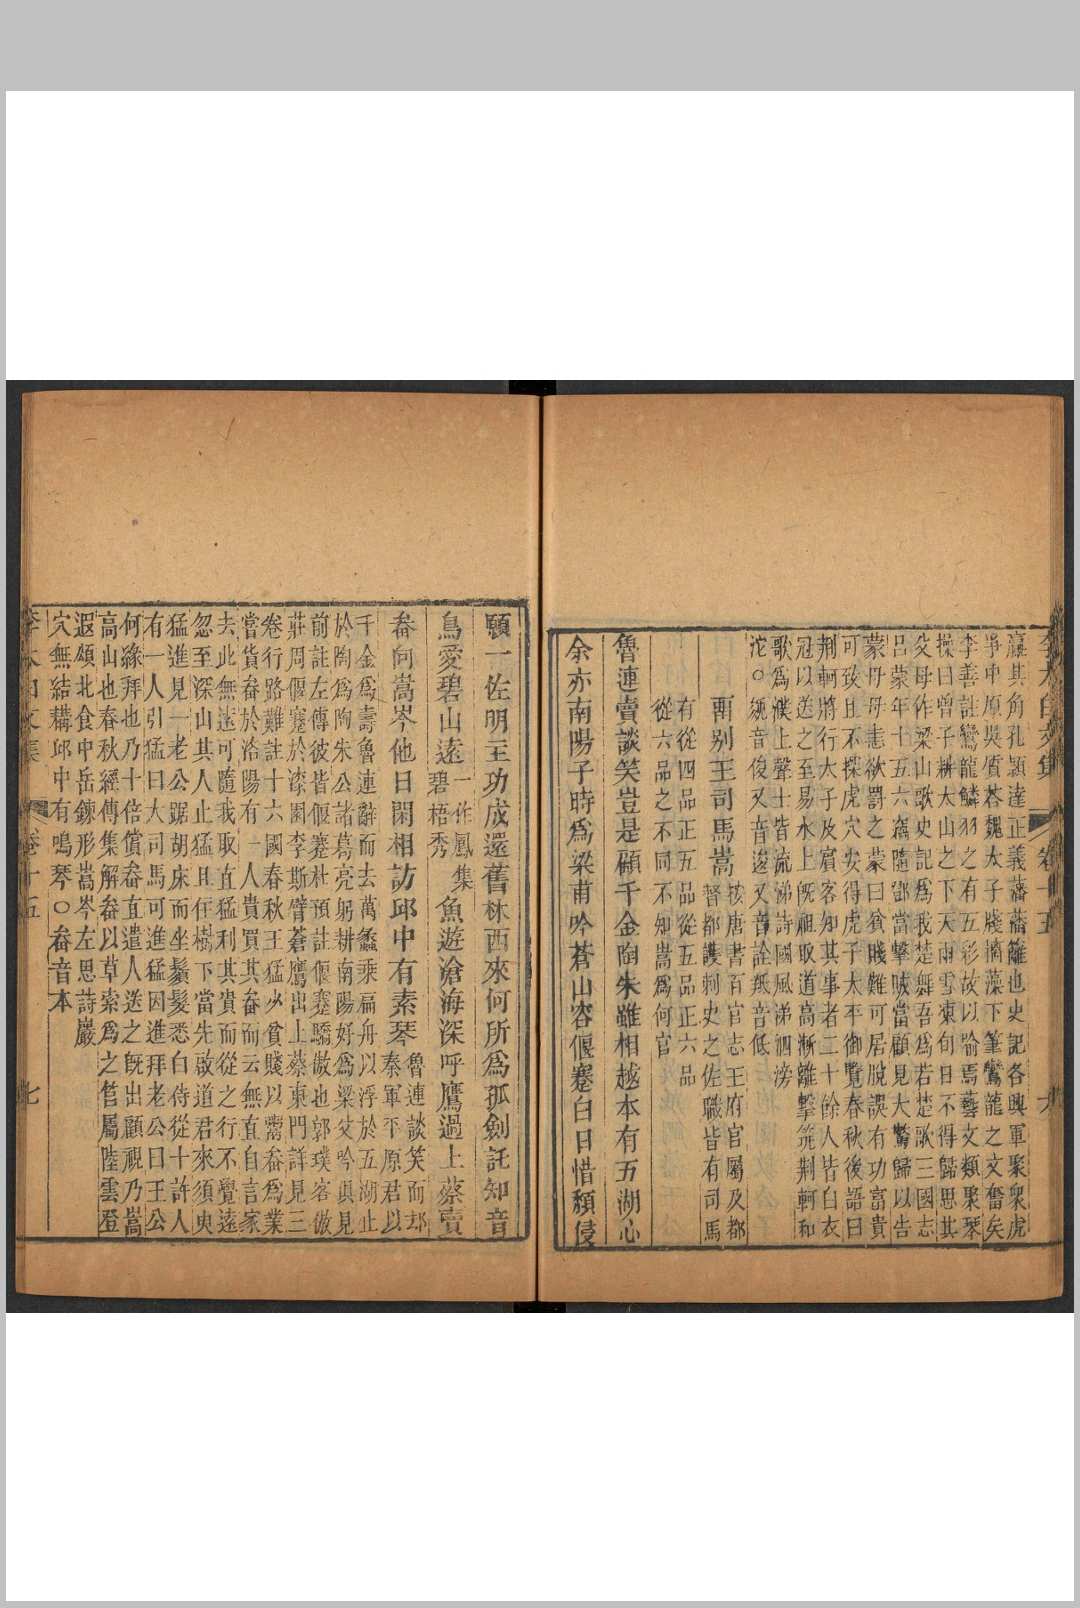 李太白文集 卷十五 六
羸其角孔穎達正義藩藩籬也史記各興軍聚衆虎
爭中原吳質荅魏太子牋摛藻下筆鸞龍之文奮矣
李善註鸞龍鱗羽之有五彩故以喻焉藝文類聚琴
操曰曾子耕太山之下天雨雪凍旬日不得歸思其
父母作梁山歌史記爲我楚舞吾爲若楚歌三國志
呂蒙年十五六竊隨鄧當擊賊當顧見大驚歸以告
蒙母母恚欲罰之蒙曰貧賤難可居脫誤有功富貴
可致且不探虎穴安得虎子太平御覽春秋後語曰
荆軻將行太子及賓客知其事者二十餘人皆白衣
冠以送之至易水上旣祖取道高漸離擊筑荆軻和
歌爲濮上聲士皆流涕詩國風涕泗滂
沱○䋺音俊又音逡又音詮羝音低
留別王司馬嵩
按唐書百官志王府官屬及都
督都護刺史之佐職皆有司馬
有從四品正五品從五品正六品
從六品之不同不知嵩爲何官
魯連賣談笑豈是顧千金陶朱雖相越本有五湖心
余亦南陽子時爲梁甫吟蒼山容偃蹇白日惜頽侵
願一佐明主功成還舊林西來何所爲孤劍託知音
鳥愛碧山遠
一作鳳集
碧梧秀
魚遊滄海深呼鷹過上蔡賣
畚向嵩岑他日閑相訪邱中有素琴
魯連談笑而却
秦軍平原君以
千金爲壽魯連辭而去范蠡乘扁舟以浮於五湖止
於陶爲陶朱公諸葛亮躬耕南陽好爲梁父吟俱見
前註左傳彼皆偃蹇杜預註偃蹇驕傲也郭璞客傲
莊周偃蹇於漆園李斯臂蒼鷹出上蔡東門詳見三
卷行路難註十六國春秋王猛少貧賤以鬻畚爲業
嘗貨畚於洛陽有一人貴買其畚而云無直自言家
去此無遠可隨我取直猛利其貴而從之行不覺遠
忽至深山其人止猛且住樹下當先啟道君來須臾
猛進見一老公踞胡床而坐鬚髮悉白侍從十許人
有一人引猛曰大司馬可進猛因進拜老公曰王公
何緣拜也乃十倍償畚直遣人送之旣出顧視乃嵩
高山也春秋經傳集解畚以草索爲之筥屬陸雲登
遐頌北食中岳鍊形嵩岑左思詩巖
穴無結構邱中有鳴琴○畚音本
李太白文集 卷十五 七